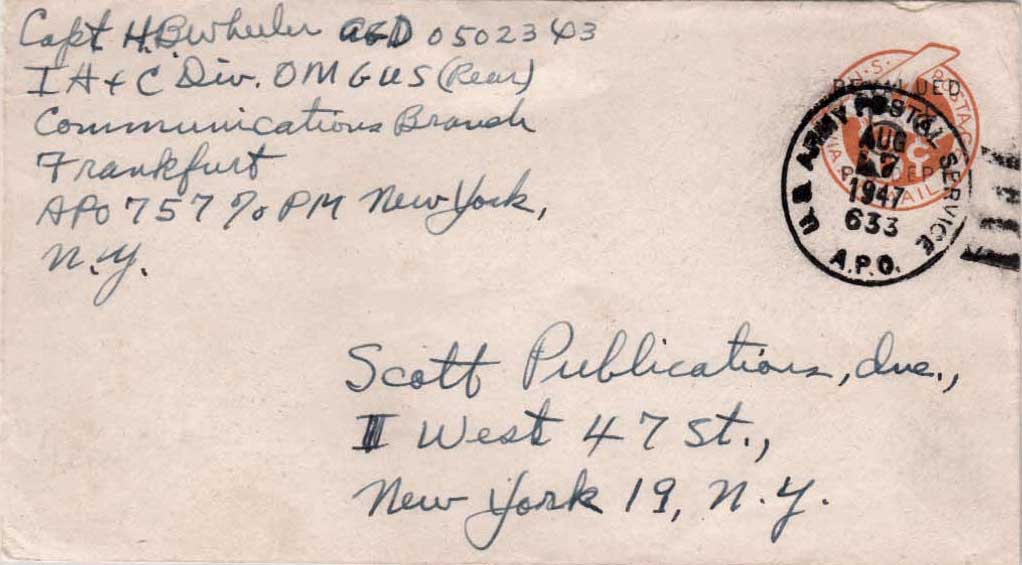 Capt. H.B. Wheeler AGD 0502343
I A + C Div. OMGUS (Rear)
Communications Branch
Frankfurt
APO 757 c/o PM New York,
N.Y.
REVALUED
U.S. POSTAGE
VIA AIR MAIL
P.O. DEP
U.S. ARMY POSTAL SERVICE
AUG
1947
633
A.P.O.
Scott Publications, Inc.,
II West 47 St.,
New York 19, N.Y.